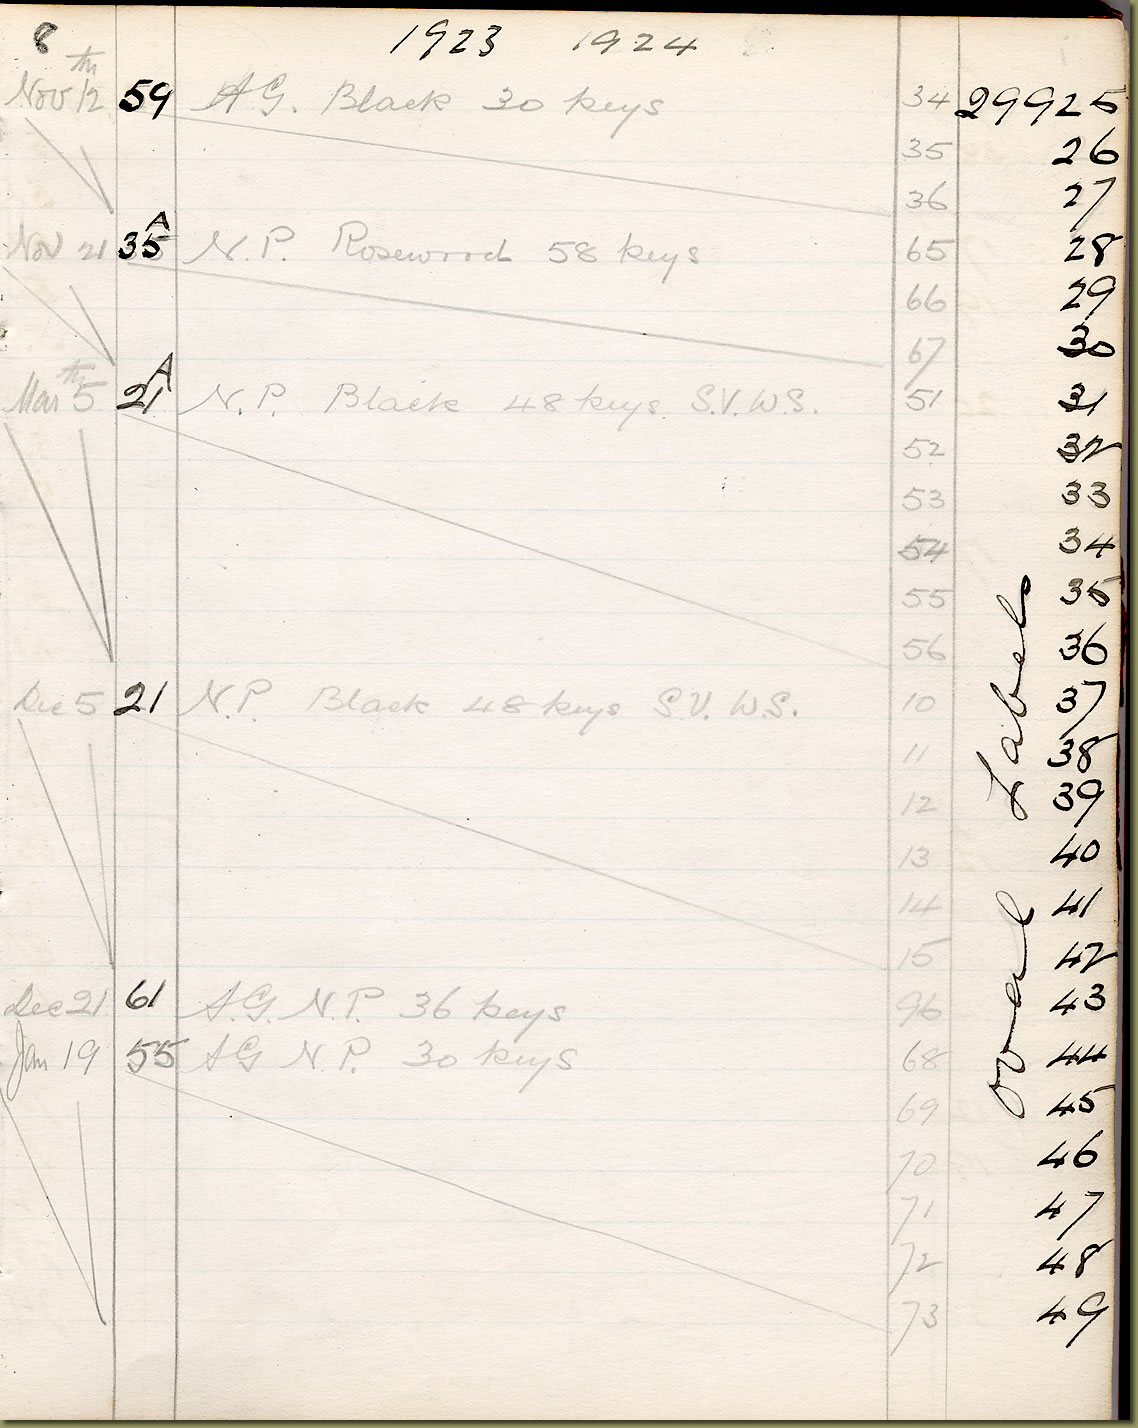 8 1923 1924
Nov 12th 59 A.G. Black 30 keys 34 29925
35 26
36 27
Nov 21 35A N.P. Rosewood 58 keys 65 28
66 29
67 30
Mar 5th 21A N.P. Black 48 keys S.V.W.S. 51 31
52 32
53 33
54 34
55 35
56 36
Dec 5 21 N.P. Black 48 keys S.V. W.S. 10 37
11 38
12 39
13 40
14 41
15 42
Dec 21 61 A.G. N.P. 36 keys 96 43
Jan 19 55 AG N.P. 30 keys 68 44
69 45
70 46
71 47
72 48
73 49
Oval Labels